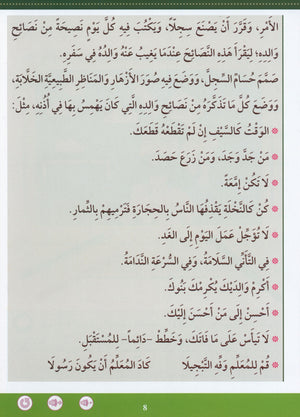 الأَمْرِ، وَقَرَّرَ أَنْ يَصْنَعَ سِجِلًّا، وَيَكْتُبَ فِيهِ كُلَّ يَوْمٍ نَصِيحَةً مِنْ نَصَائِحِ
وَالِدِهِ؛ لِيَقْرَأَ هَذِهِ النَّصَائِحَ عِنْدَمَا يَغِيبُ عَنْهُ وَالِدُهُ فِي سَفَرِهِ.
صَمَّمَ حُسَامٌ السِّجِلَّ، وَوَضَعَ فِيهِ صُوَرَ الأَزْهَارِ وَالمَنَاظِرِ الطَّبِيعِيَّةِ الخَلَّابَةِ،
وَوَضَعَ كُلَّ مَا تَذَكَّرَهُ مِنْ نَصَائِحِ وَالِدِهِ الَّتِي كَانَ يَهْمِسُ بِهَا فِي أُذُنِهِ، مِثْلَ:
الوَقْتُ كَالسَّيْفِ إِنْ لَمْ تَقْطَعْهُ قَطَعَكَ.
مَنْ جَدَّ وَجَدَ، وَمَنْ زَرَعَ حَصَدَ.
لَا تَكُنْ إِمَّعَةً.
كُنْ كَالنَّخْلَةِ يَقْذِفُهَا النَّاسُ بِالحِجَارَةِ فَتَرْمِيهِمْ بِالثِّمَارِ.
لَا تُؤَجِّلْ عَمَلَ اليَوْمِ إِلَى الغَدِ.
فِي التَّأَنِّي السَّلَامَةُ، وَفِي السُّرْعَةِ النَّدَامَةُ.
أَكْرِمْ وَالِدَيْكَ يُكْرِمْكَ بَنُوكَ.
أَحْسِنْ إِلَى مَنْ أَحْسَنَ إِلَيْكَ.
لَا تَيْأَسْ عَلَى مَا فَاتَكَ، وَخَطِّطْ -دَائِماً- لِلمُسْتَقْبَلِ.
قُمْ لِلمُعَلِّمِ وَفِّهِ التَّبْجِيلَا كَادَ المُعَلِّمُ أَنْ يَكُونَ رَسُولَا
8